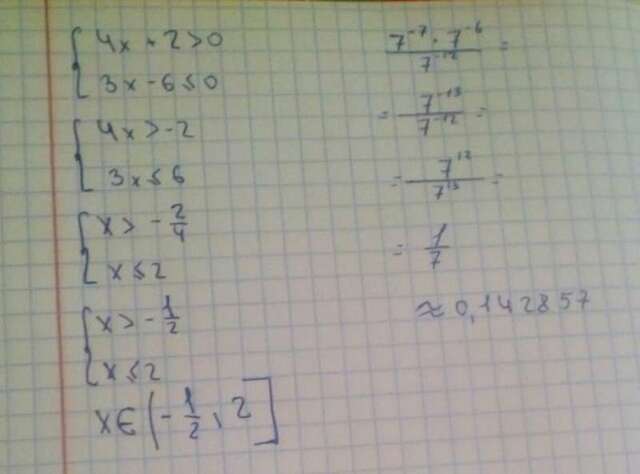 4x + 2 > 0
3x - 6 ≤ 0
4x > -2
3x ≤ 6
x > -2/4
x ≤ 2
x > -1/2
x ≤ 2
x ∈ (-1/2, 2]
7⁻⁷ · 7⁻⁶ / 7⁻¹² =
= 7⁻¹³ / 7⁻¹² =
= 7¹² / 7¹³ =
= 1/7
≈ 0,142857